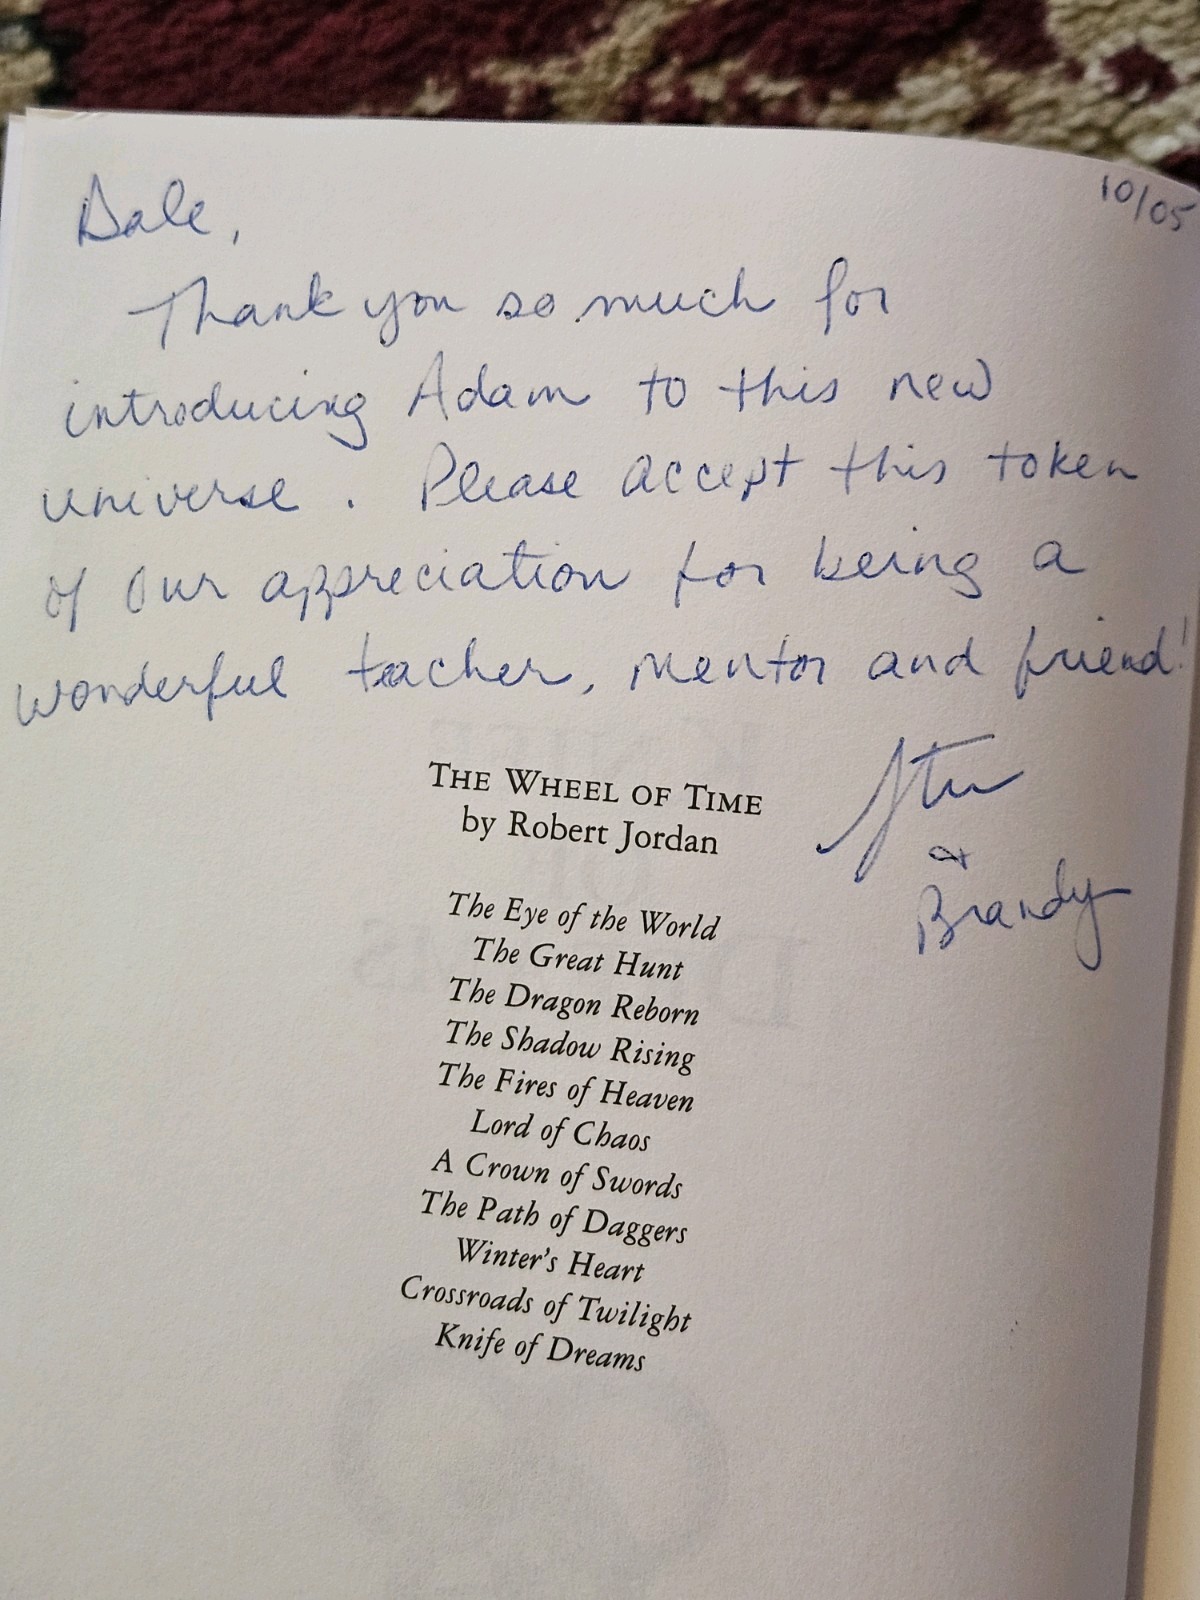 10/05
Dale,
Thank you so much for
introducing Adam to this new
universe. Please accept this token
of our appreciation for being a
wonderful teacher, mentor and friend!
&
Brandy
THE WHEEL OF TIME
by Robert Jordan
The Eye of the World
The Great Hunt
The Dragon Reborn
The Shadow Rising
The Fires of Heaven
Lord of Chaos
A Crown of Swords
The Path of Daggers
Winter's Heart
Crossroads of Twilight
Knife of Dreams